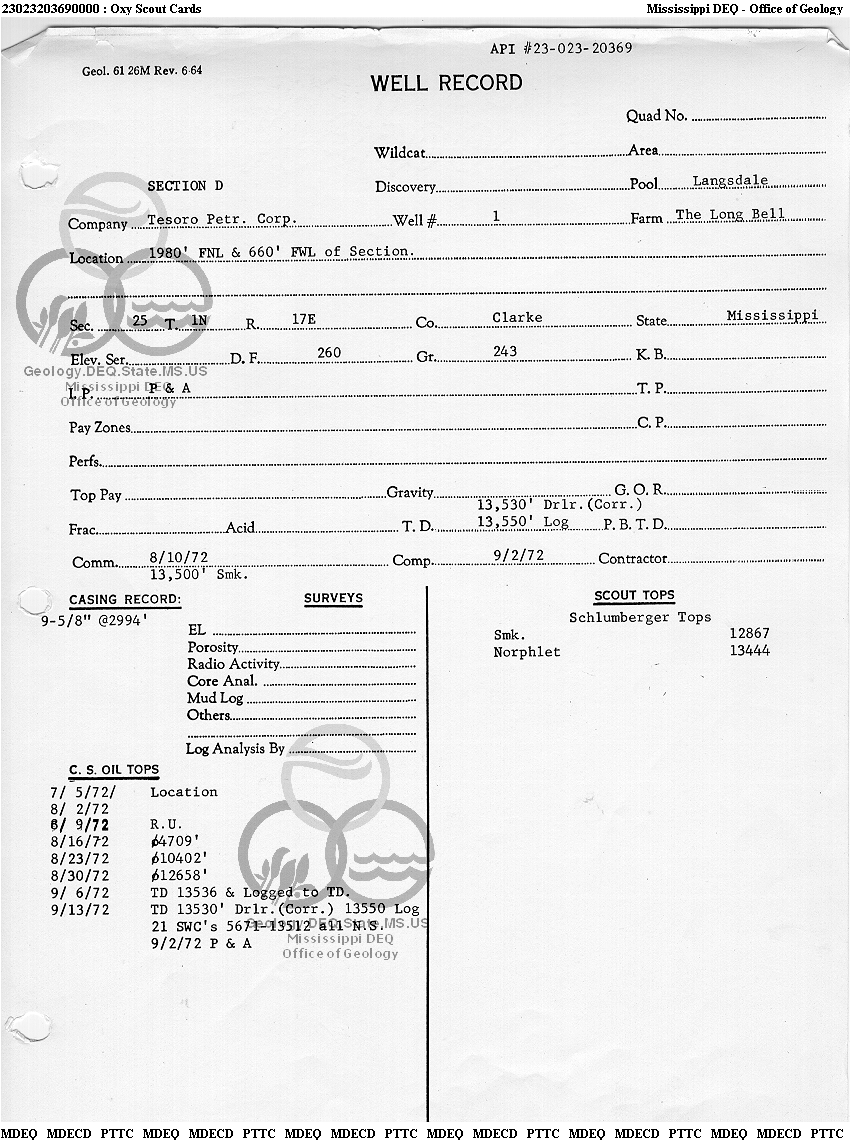 23023203690000 : Oxy Scout Cards Mississippi DEQ - Office of Geology
API #23-023-20369
Geol. 61 26M Rev. 6-64
WELL RECORD
Quad No.
Wildcat Area
SECTION D Discovery Pool Langsdale
Company Tesoro Petr. Corp. Well # 1 Farm The Long Bell
Location 1980' FNL & 660' FWL of Section.
Sec. 25 T. 1N R. 17E Co. Clarke State Mississippi
Elev. Ser. D. F. 260 Gr. 243 K. B.
Geology.DEQ.State.MS.US
Mississippi DEQ
Office of Geology
I. P. P & A T. P.
Pay Zones C. P.
Perfs.
Top Pay Gravity G. O. R.
13,530' Drlr.(Corr.)
Frac. Acid T. D. 13,550' Log P. B. T. D.
Comm. 8/10/72 Comp. 9/2/72 Contractor
13,500' Smk.
CASING RECORD: SURVEYS SCOUT TOPS
9-5/8" @2994' Schlumberger Tops
EL Smk. 12867
Porosity Norphlet 13444
Radio Activity
Core Anal.
Mud Log
Others
Log Analysis By
C. S. OIL TOPS
7/ 5/72/ Location
8/ 2/72
8/ 9/72 R.U.
8/16/72 ȼ4709'
8/23/72 ȼ10402'
8/30/72 ȼ12658'
9/ 6/72 TD 13536 & Logged to TD.
9/13/72 TD 13530' Drlr.(Corr.) 13550 Log
21 SWC's 5671-13512 all N.S.
9/2/72 P & A
Geology.DEQ.State.MS.US
Mississippi DEQ
Office of Geology
MDEQ MDECD PTTC MDEQ MDECD PTTC MDEQ MDECD PTTC MDEQ MDECD PTTC MDEQ MDECD PTTC MDEQ MDECD PTTC